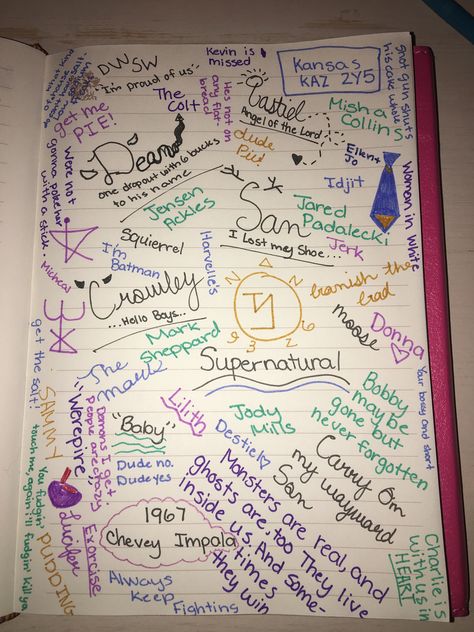 DWSW
"I'm proud of us"
Kevin is
missed
Kansas
KAZ 2Y5
Shot gun shuts
his cake whole
get me
PIE!
The
Colt
He's not on
any flat-
bread
Castiel
Angel of the Lord
Misha
Collins
dude
Pie!
Ellen +
Jo
Dean
one dropout with 6 bucks
to his name
We're not
gonna poke him
with a stick.
Idjit
Women in White
Jensen
Ackles
Sam
I Lost my Shoe...
Jared
Padalecki
Jerk
Squierrel
I'm
Batman
Harvelle's
Micheal
Crowley
...Hello Boys...
banish the
bad
moose
Mark
Sheppard
Donna
get the salt!
Supernatural
The
Mark
Your bossy and short
SAMMY
"Werepire"
Demons I get
People are crazy
Lilith
Jody
Mills
Destiel
Bobby
may be
gone but
never forgotten
"Baby"
Dude no.
Dude yes
Carry on
my wayward
Son
Monsters are real, and
ghosts are too They live
inside us. And some-
times
they win
You fudgin'
touch me again, I'll fudgin kill ya
Lucifer
Exorcise
pudding
1967
Chevey Impala
Always
Keep
Fighting
Charlie is
with us in
HEART